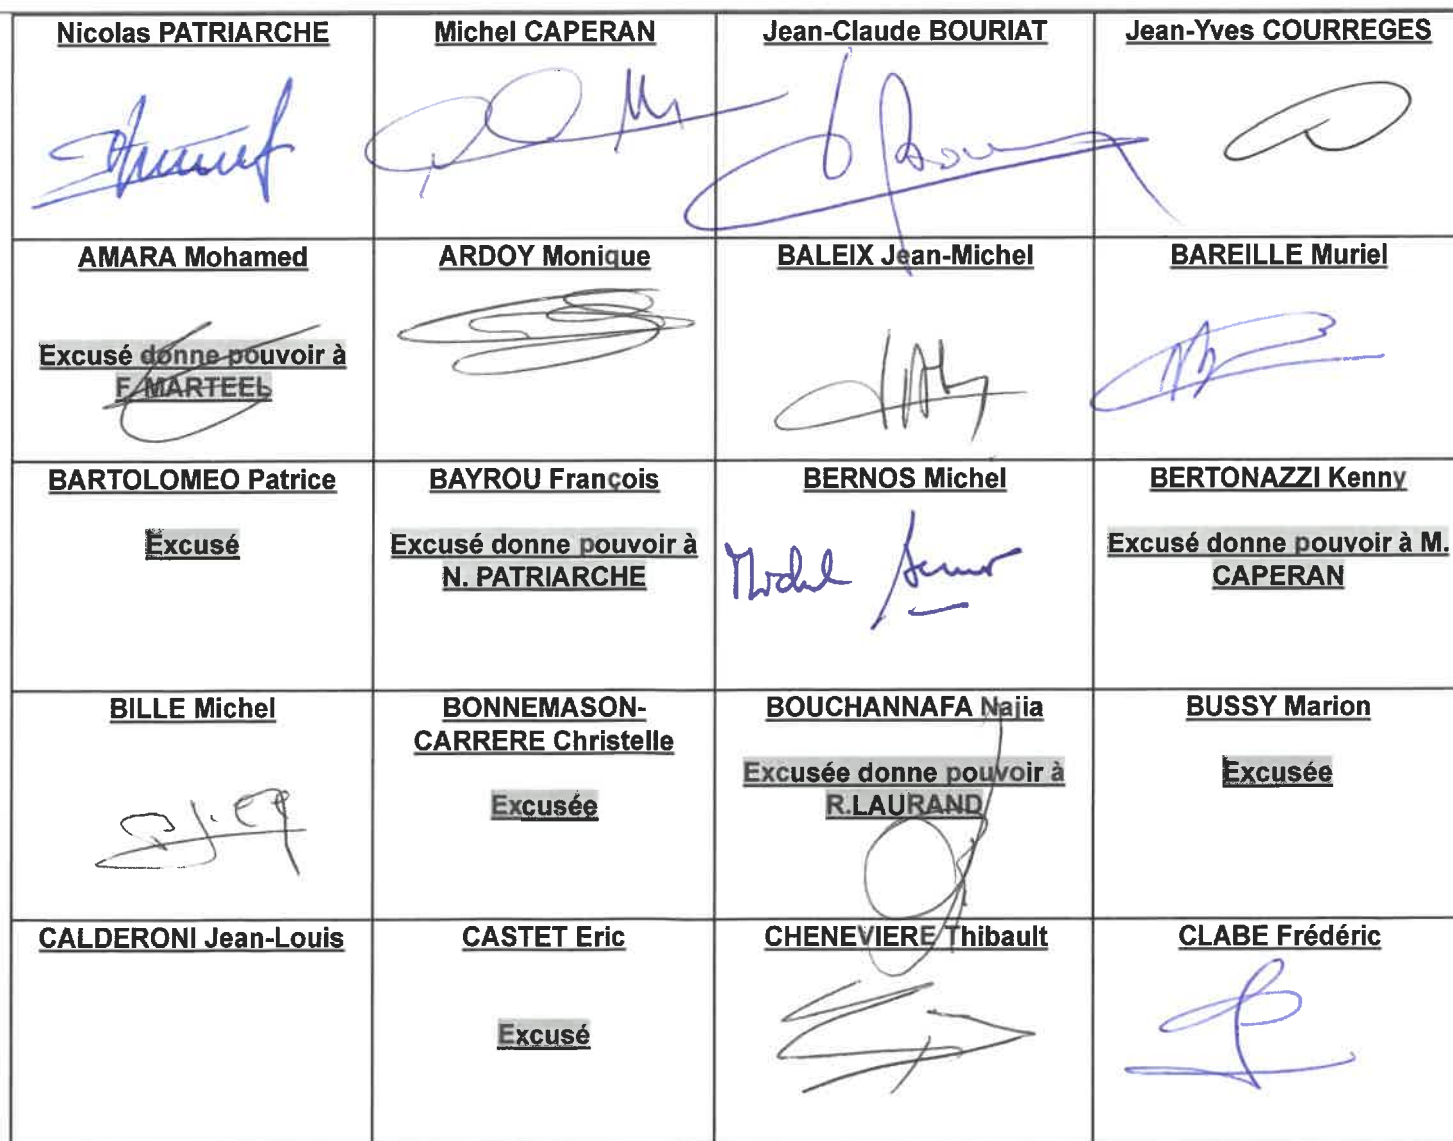 Nicolas PATRIARCHE
Michel CAPERAN
Jean-Claude BOURIAT
Jean-Yves COURREGES
AMARA Mohamed
Excusé donne pouvoir à
F. MARTEEL
ARDOY Monique
BALEIX Jean-Michel
BAREILLE Muriel
BARTOLOMEO Patrice
Excusé
BAYROU François
Excusé donne pouvoir à
N. PATRIARCHE
BERNOS Michel
Michel
BERTONAZZI Kenny
Excusé donne pouvoir à M.
CAPERAN
BILLE Michel
BONNEMASON-
CARRERE Christelle
Excusée
BOUCHANNAFA Najia
Excusée donne pouvoir à
R.LAURAND
BUSSY Marion
Excusée
CALDERONI Jean-Louis
CASTET Eric
Excusé
CHENEVIERE Thibault
CLABE Frédéric